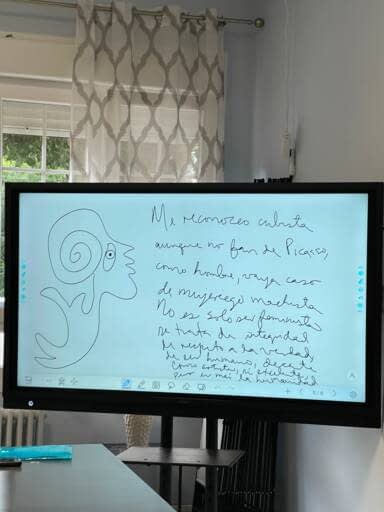 Me reconozco cubista
aunque no fan de Picasso,
como hombre, vaya caso
de mujeriego machista
No es solo ser feminista
se trata de integridad
de respeto a la verdad,
de ser humano, decente
como artista, ni
la humanidad